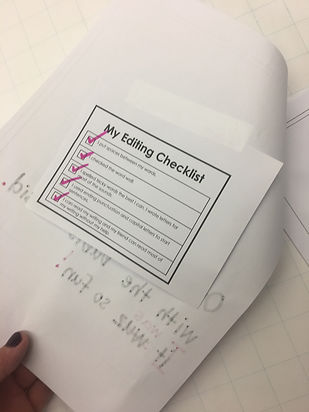 My Editing Checklist
I put spaces between my words.
I checked the word wall.
I spelled tricky words the best I can. I wrote letters for
most of the sounds.
I used ending punctuation and capital letters to start
sentences.
I can read my writing and my friend can read most of
my writing without my help.
big.
with the
It was so fun